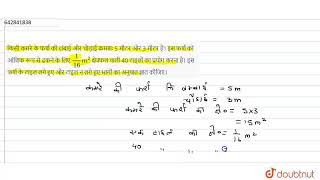 642841838
किसी कमरे के फर्श की लंबाई और चौड़ाई क्रमशः 5 मीटर और 3 मीटर है। इस फर्श को
आंशिक रूप से ढकने के लिए 1/16 m² क्षेत्रफल वाली 40 टाइलों का प्रयोग करना है। इस
फर्श के टाइल लगे हुए और टाइल न लगे हुए भागों का अनुपात ज्ञात कीजिए।
कमरे की फर्श कि लम्बाई = 5m
चौड़ाई = 3m
कमरे की फर्श का क्षे० = 5×3
= 15m²
एक टाइल का क्षे० = 1/16 m²
40 " " "
doubtnut